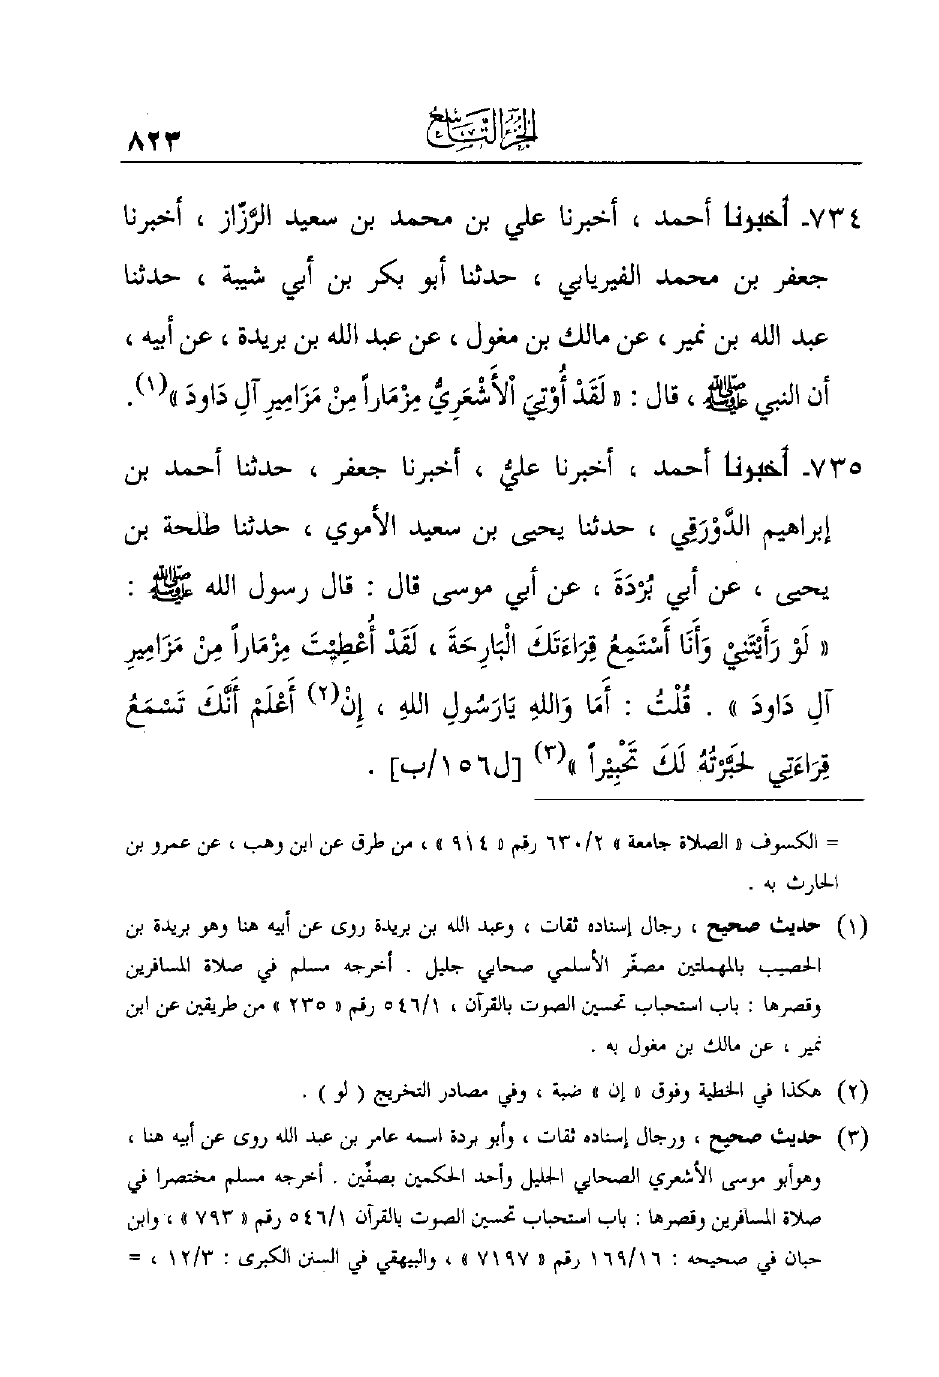 الجزء التاسع
٨٢٣
٧٣٤ـ أخبرنا أحمد ، أخبرنا علي بن محمد بن سعيد الرَّزّاز ، أخبرنا
جعفر بن محمد الفيريابي ، حدثنا أبو بكر بن أبي شيبة ، حدثنا
عبد الله بن نمير ، عن مالك بن مغول ، عن عبد الله بن بريدة ، عن أبيه ،
أن النبي ﷺ ، قال : « لَقَدْ أُوْتِيَ الْأَشْعَرِيُّ مِزْمَاراً مِنْ مَزَامِيرِ آلِ دَاودَ »(١).
٧٣٥ـ أخبرنا أحمد ، أخبرنا عليٌّ ، أخبرنا جعفر ، حدثنا أحمد بن
إبراهيم الدَّوْرَقِي ، حدثنا يحيى بن سعيد الأموي ، حدثنا طلحة بن
يحيى ، عن أبي بُرْدَةَ ، عن أبي موسى قال : قال رسول الله ﷺ :
« لَوْ رَأَيْتَنِيْ وَأَنَا أَسْتَمِعُ قِرَاءَتَكَ الْبَارِحَةَ ، لَقَدْ أُعْطِيْتَ مِزْمَاراً مِنْ مَزَامِيرِ
آلِ دَاودَ » . قُلْتُ : أَمَا وَاللهِ يَارَسُولِ اللهِ ، إِنْ(٢) أَعْلَمْ أَنَّكَ تَسْمَعُ
قِرَاءَتِي لَحَبَّرْتُهُ لَكَ تَحْبِيْراً »(٣) [ل١٥٦/ب] .
= الكسوف « الصلاة جامعة » ٦٣٠/٢ رقم « ٩١٤ » ، من طرق عن ابن وهب ، عن عمرو بن
الحارث به .
(١) حديث صحيح ، رجال إسناده ثقات ، وعبد الله بن بريدة روى عن أبيه هنا وهو بريدة بن
الحصيب بالمهملتين مصغّر الأسلمي صحابي جليل . أخرجه مسلم في صلاة المسافرين
وقصرها : باب استحباب تحسين الصوت بالقرآن ، ٥٤٦/١ رقم « ٢٣٥ » من طريقين عن ابن
نمير ، عن مالك بن مغول به .
(٢) هكذا في الخطية وفوق « إن » ضبة ، وفي مصادر التخريج ( لو ) .
(٣) حديث صحيح ، ورجال إسناده ثقات ، وأبو بردة اسمه عامر بن عبد الله روى عن أبيه هنا ،
وهوأبو موسى الأشعري الصحابي الجليل وأحد الحكمين بصفّين . أخرجه مسلم مختصرا في
صلاة المسافرين وقصرها : باب استحباب تحسين الصوت بالقرآن ٥٤٦/١ رقم « ٧٩٣ » ، وابن
حبان في صحيحه : ١٦٩/١٦ رقم « ٧١٩٧ » ، والبيهقي في السنن الكبرى : ١٢/٣ ، =